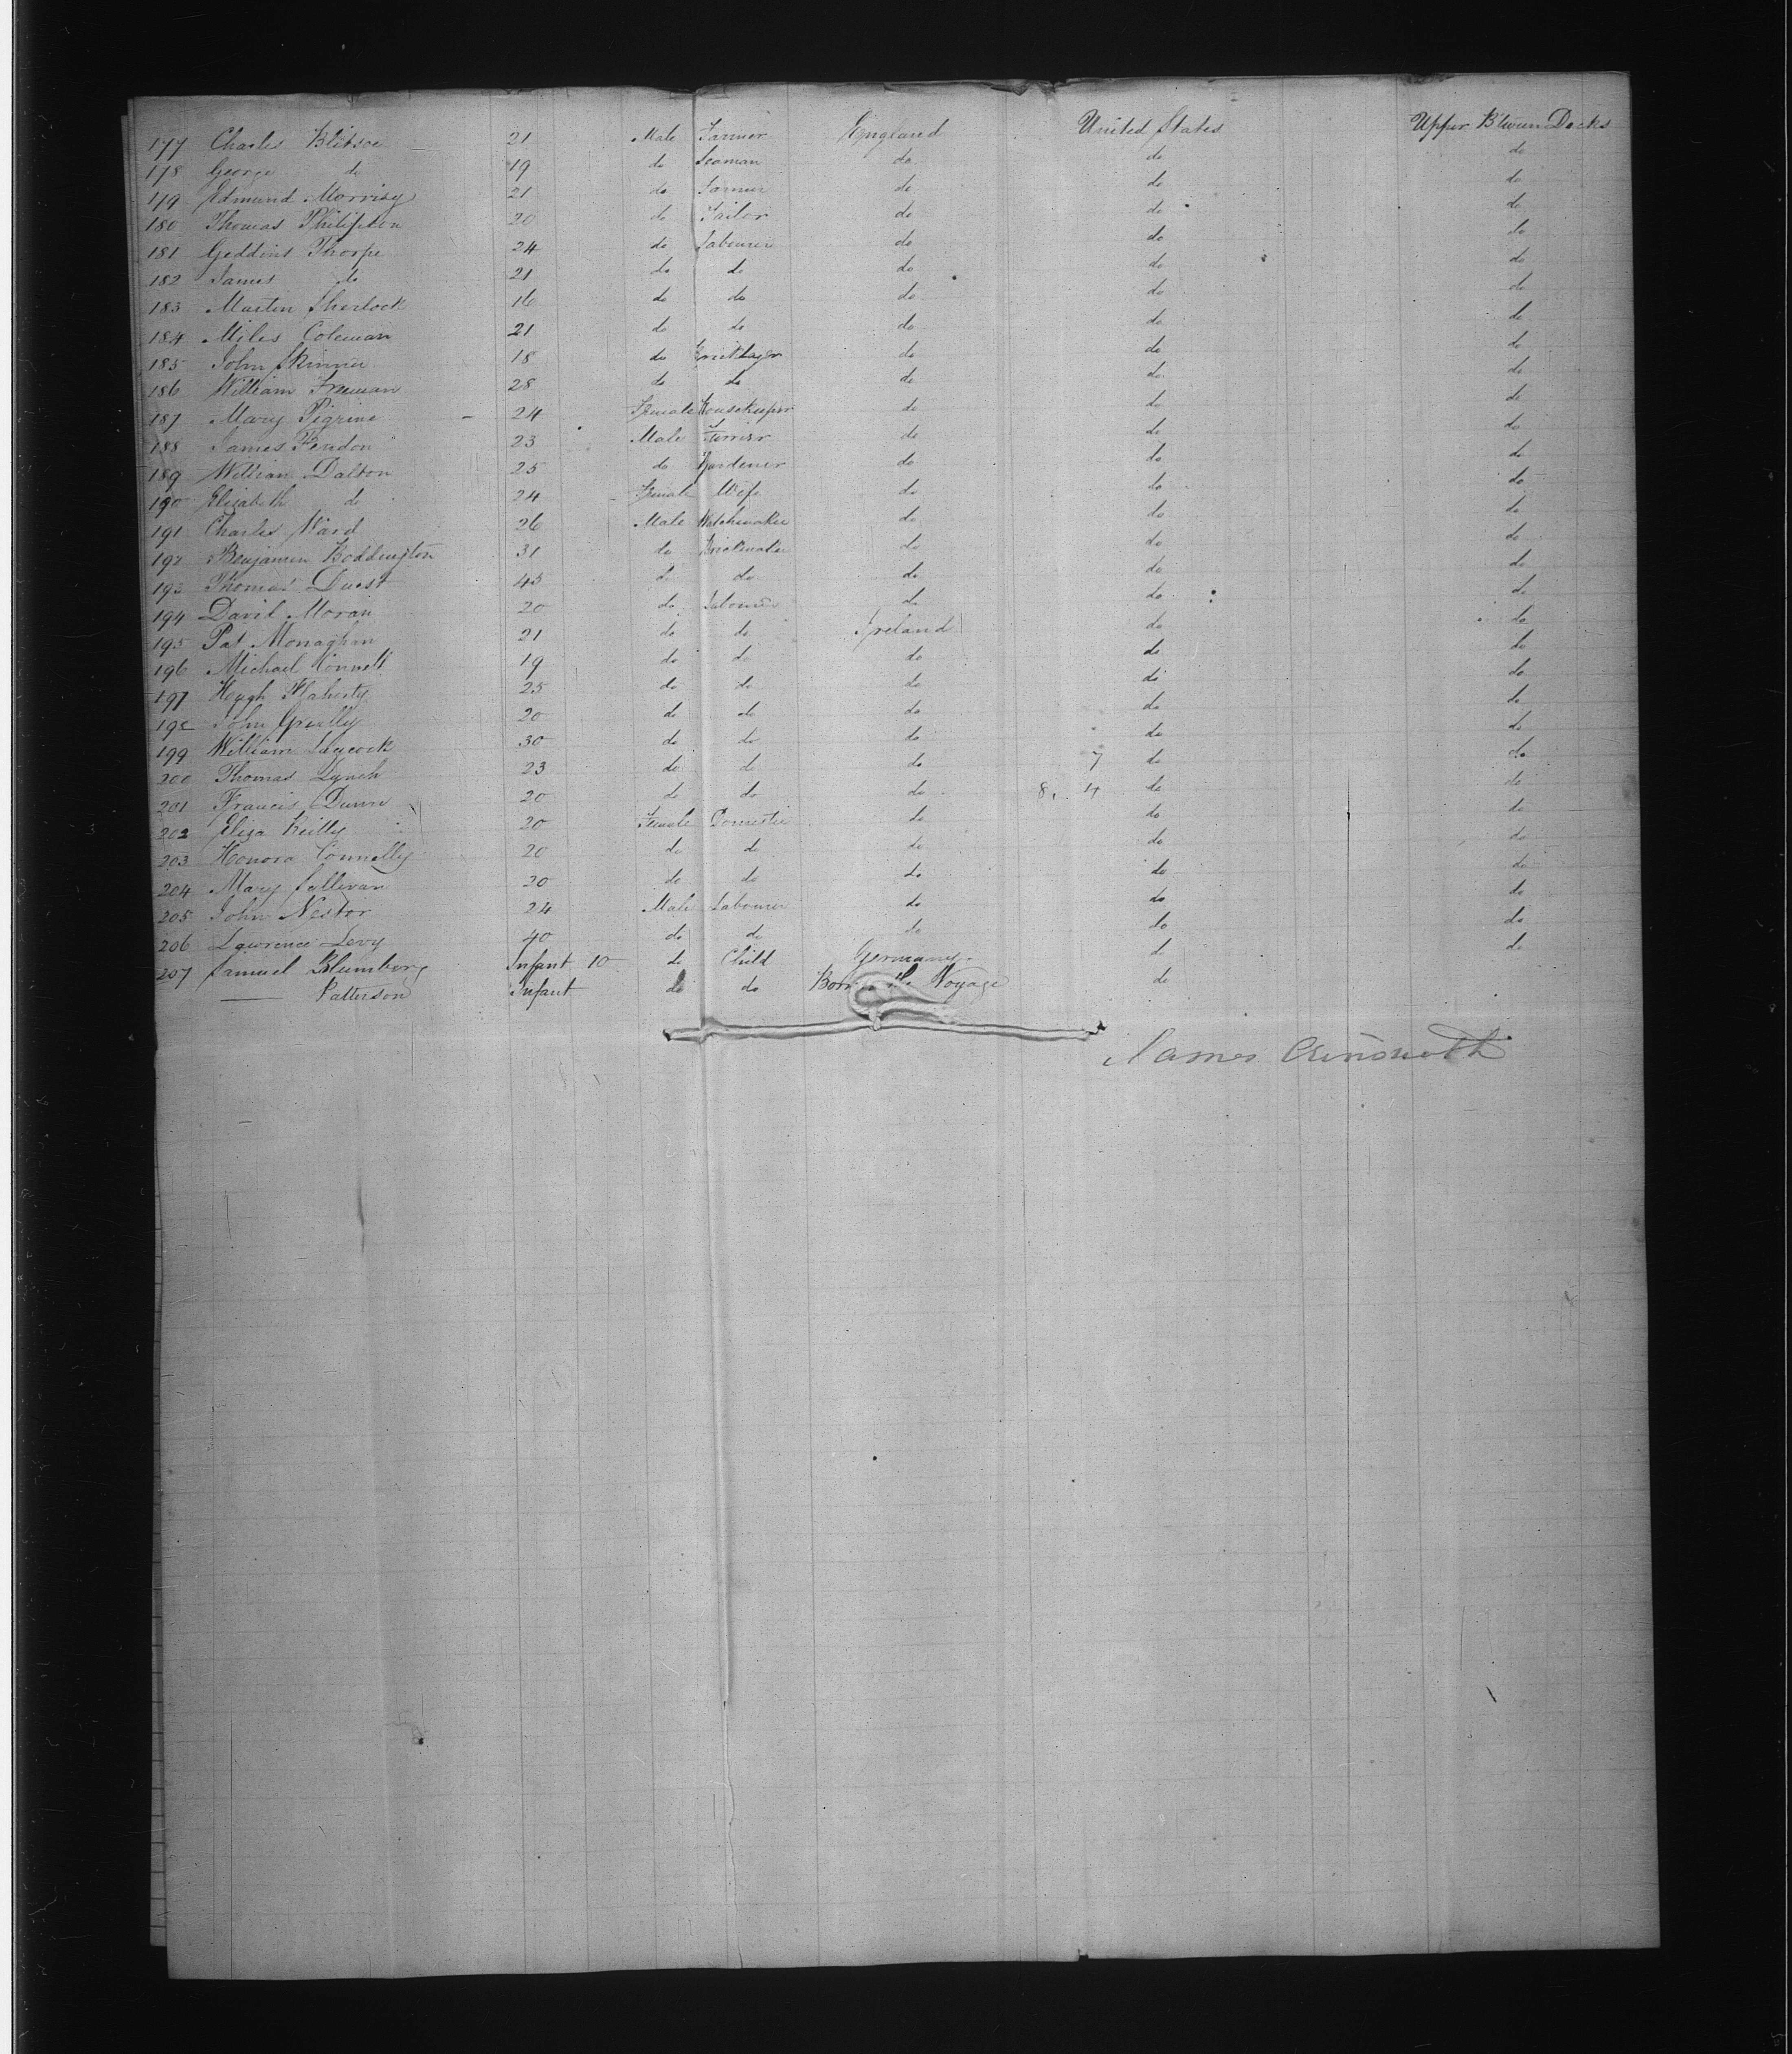 177 Charles Blitsoe 21 Male Farmer England United States Upper B'tween Decks
178 George do 19 do Seaman do do do
179 Edmund Morrisy 21 do Farmer do do do
180 Thomas 20 do Tailor do do do
181 Thorpe 24 do Labourer do do do
182 James do 21 do do do do do
183 Martin Sherlock 16 do do do do do
184 Miles Coleman 21 do do do do do
185 John Skinner 18 do Bricklayer do do do
186 William Freeman 28 do do do do do
187 Mary Pigrine 24 Female Housekeeper do do do
188 James 23 Male Furrier do do do
189 William Dalton 25 do Gardener do do do
190 Elizabeth do 24 Female Wife do do do
191 Charles Ward 26 Male Watchmaker do do do
192 Benjamin Boddington 31 do Brickmaker do do do
193 Thomas Durst 45 do do do do do
194 David Moran 20 do Labourer do do do
195 Pat Monaghan 21 do do Ireland do do
196 Michael Connell 19 do do do do do
197 Hough Flaherty 25 do do do do do
198 John Greally 20 do do do do do
199 William Laycock 30 do do do do do
200 Thomas Lynch 23 do do do 7 do do
201 Francis Dunn 20 do do do 8. 4 do do
202 Eliza Reilly 20 Female Domestic do do do
203 Honora Connelly 20 do do do do do
204 Mary Sullivan 20 do do do do do
205 John Nestor 24 Male Labourer do do do
206 Lawrence Levy 40 do do do do do
207 Samuel Blumberg Infant 10 do Child Germany do do
—— Patterson Infant do do Born on the Voyage do
James